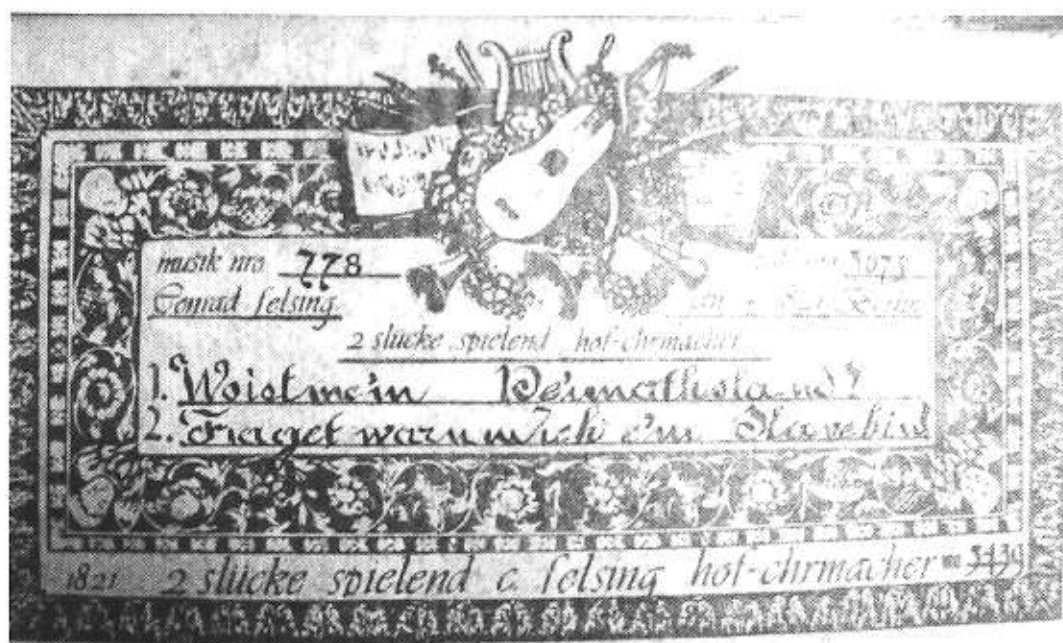 musik nro. 778
Conrad felsing
2 slücke spielend hof-chrmacher
1. Woistmein Heimathsland?
2. Fraget warum ich ein Slavebin
1821 2 slücke spielend c. felsing hof-chrmacher no 3439